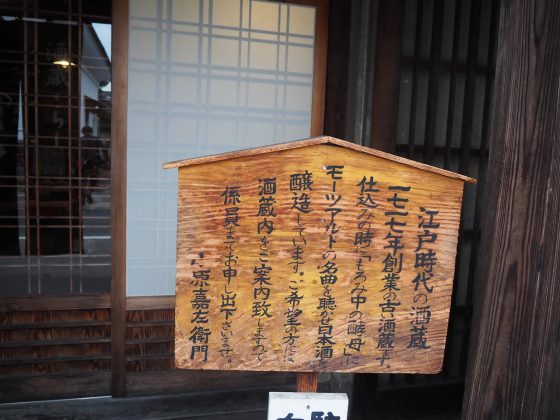 江戸時代の酒蔵
一七一七年創業の古酒蔵です。
仕込みの時「もろみ中の酵母」に
モーツアルトの名曲を聴かせ日本酒を
醸造しています。ご希望の方には
酒蔵内をご案内致しますので
係員までお申し出下さいませ。
小原嘉左衛門
酒蔵